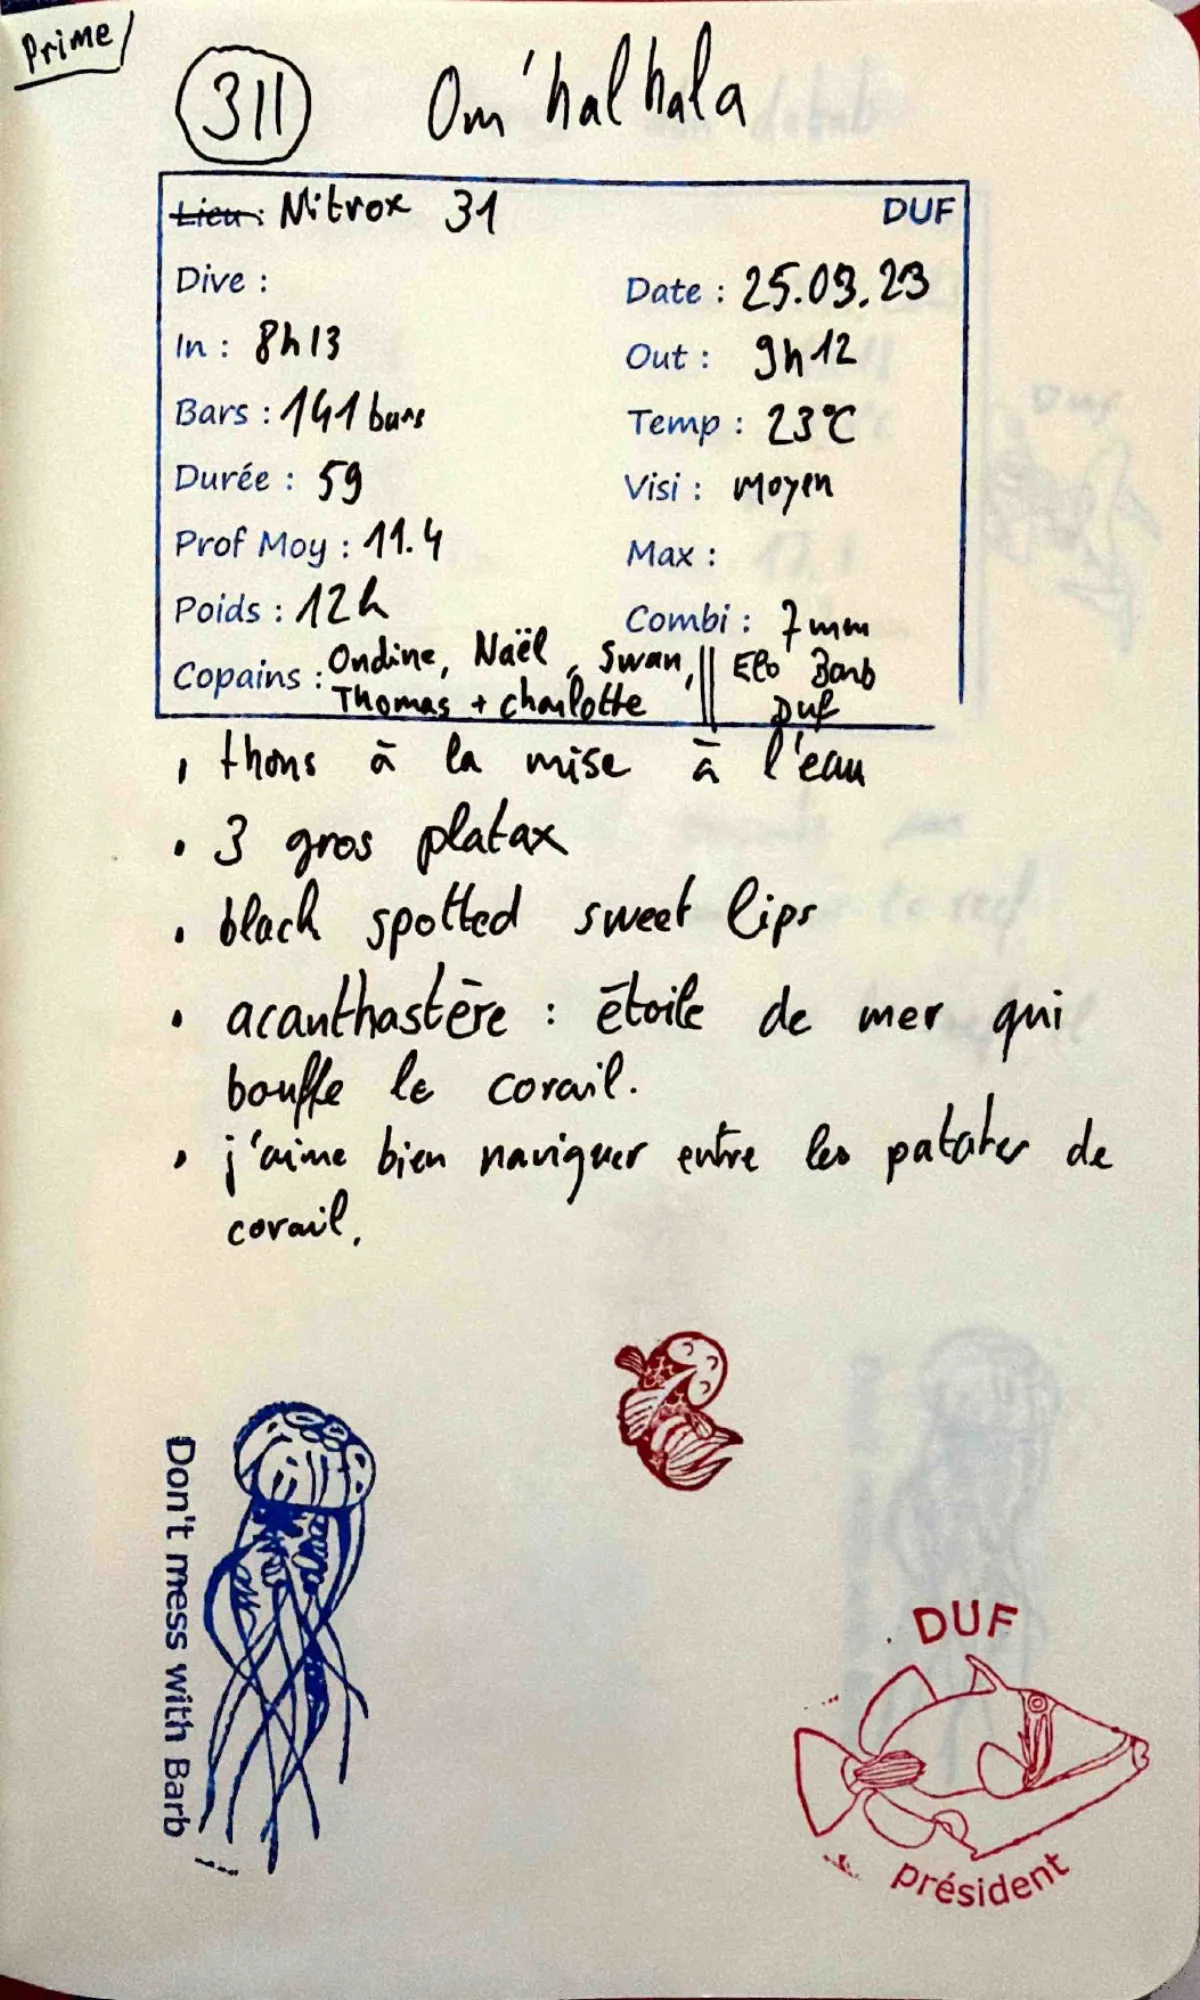 Prime
311 Om'halhala
Lieu : Nitrox 31 DUF
Dive :
Date : 25.03.23
In : 8h13
Out : 9h12
Bars : 141 bars
Temp : 23°C
Durée : 59
Visi : Moyen
Prof Moy : 11.4
Max :
Poids : 12k
Combi : 7mm
Copains : Ondine, Naël, Swan, || Elo Barb
Thomas + charlotte Duf
thons à la mise à l'eau
• 3 gros platax
• black spotted sweet lips
• acanthastère : étoile de mer qui
bouffe le corail.
• j'aime bien naviguer entre les patates de
corail.
Don't mess with Barb
DUF
président